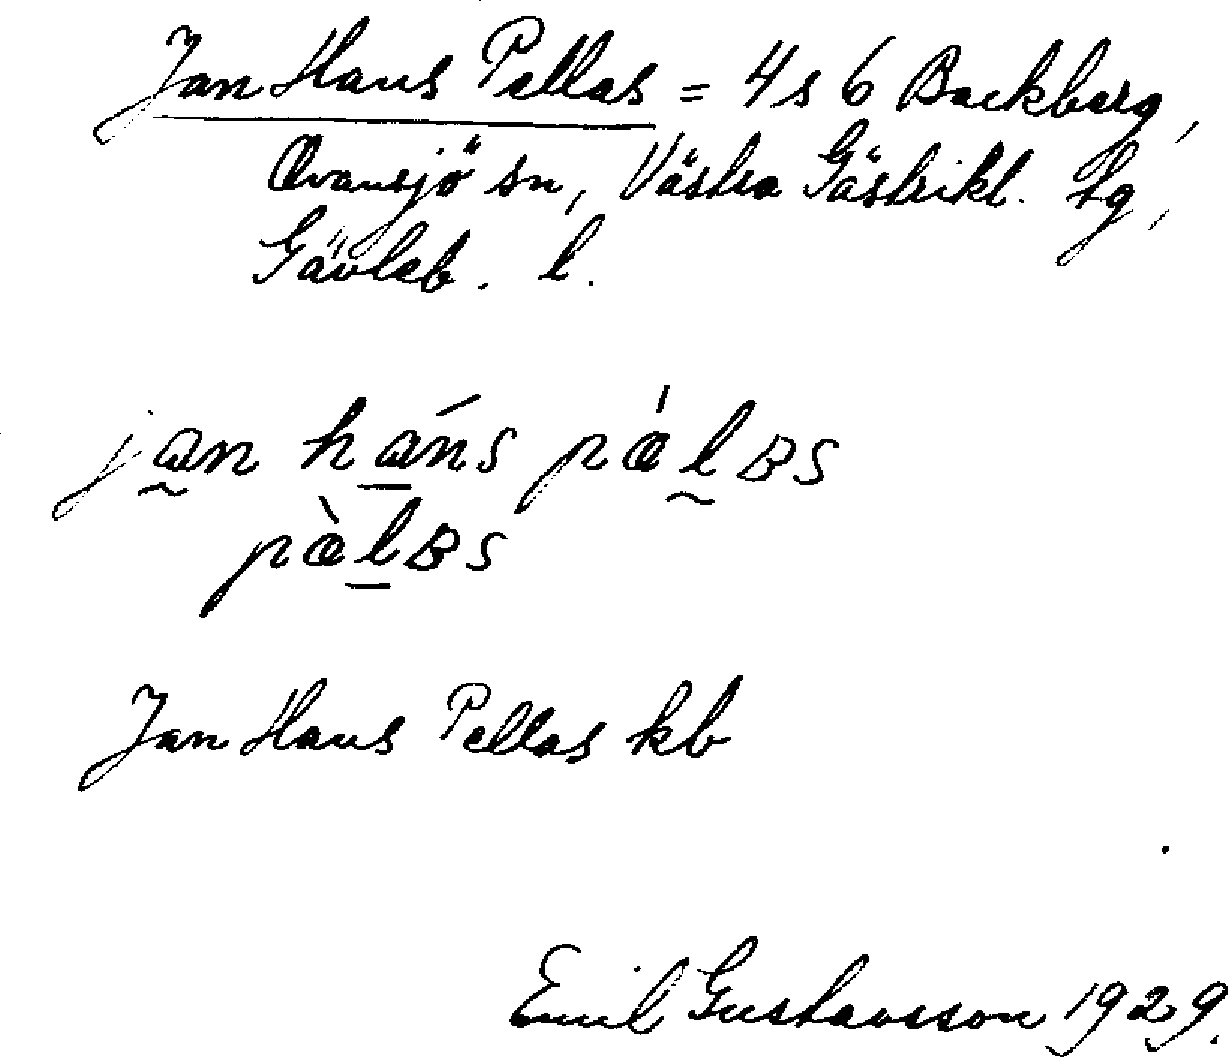 Jan Hans Pellas = 4 s 6 Backberg,
Ovansjö sn, Västra Gästrikl. tg,
Gävleb. l.
jan háns pǽlʙs
pæ̀lʙs
Jan Hans Pellas kb
Emil Gustavsson 1929.